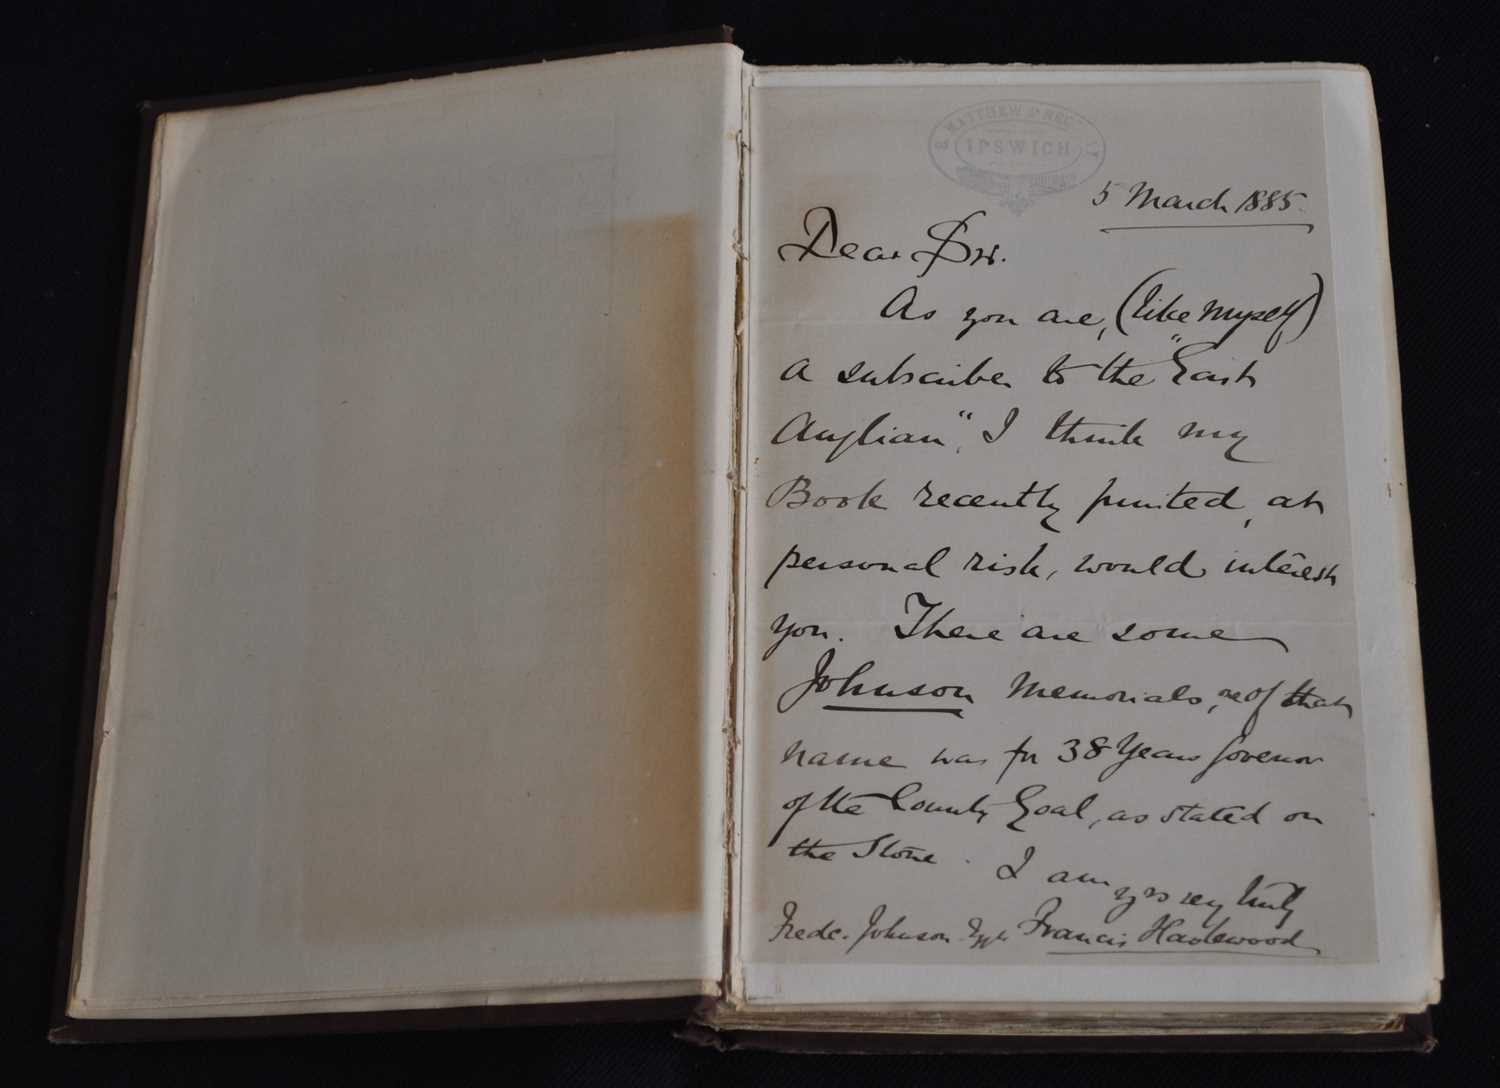 S. MATTHEW'S REC Y
IPSWICH
5 March 1885.
Dear Sir.
As you are, (like myself)
a subscriber to the "East
Anglian", I think my
Book recently printed, at
personal risk, would interest
you. There are some
Johnson Memorials, of that
name was for 38 Years Govenor
of the County Goal, as stated on
the Stone. I am
yrs very truly
Fredc. Johnson Esqre Francis Haslewood